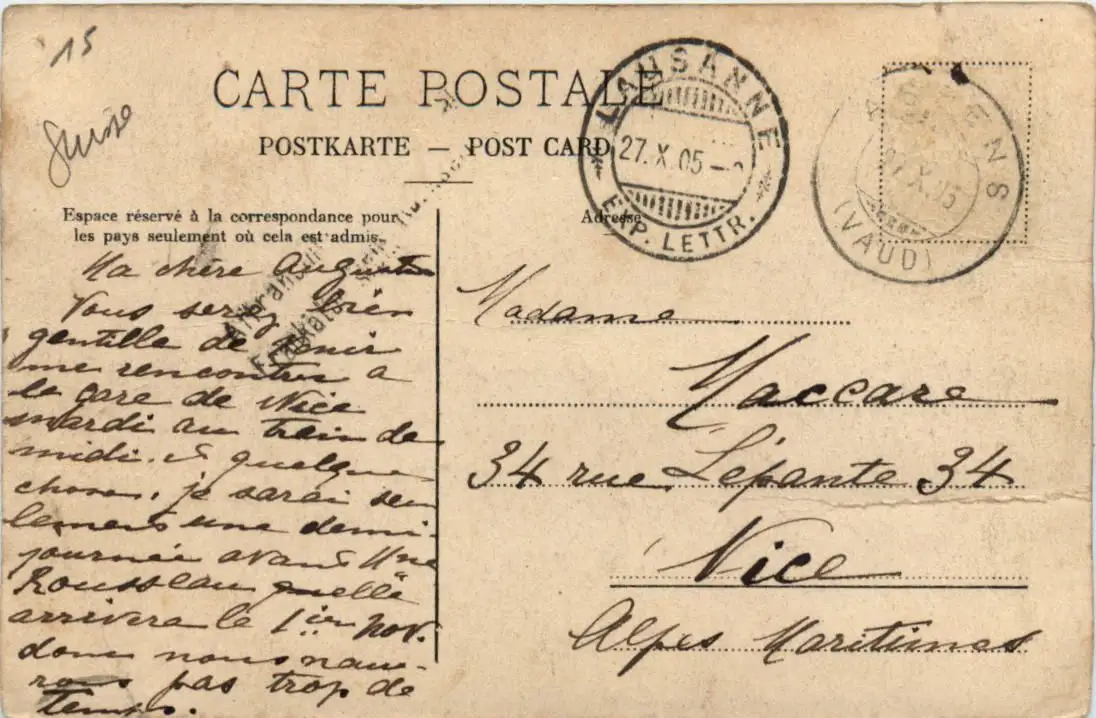 15
Suisse
CARTE POSTALE
POSTKARTE — POST CARD
Espace réservé à la correspondance pour
les pays seulement où cela est admis.
Adresse
LAUSANNE
27.X.05
EXP. LETTR.
(VAUD)
Ma chère Augustine
Vous serez bien
gentille de venir
me rencontrer a
la gare de Nice
mardi au train de
midi et quelque
chose, je sarai seu
lement une demi-
journée avant Mme
Rousseau quelle
arrivera le 1ier Nov.
donc nous n'au-
rons pas trop de
temps.
Madame
Maccare
34 rue Lépante 34
Nice
Alpes Maritimes